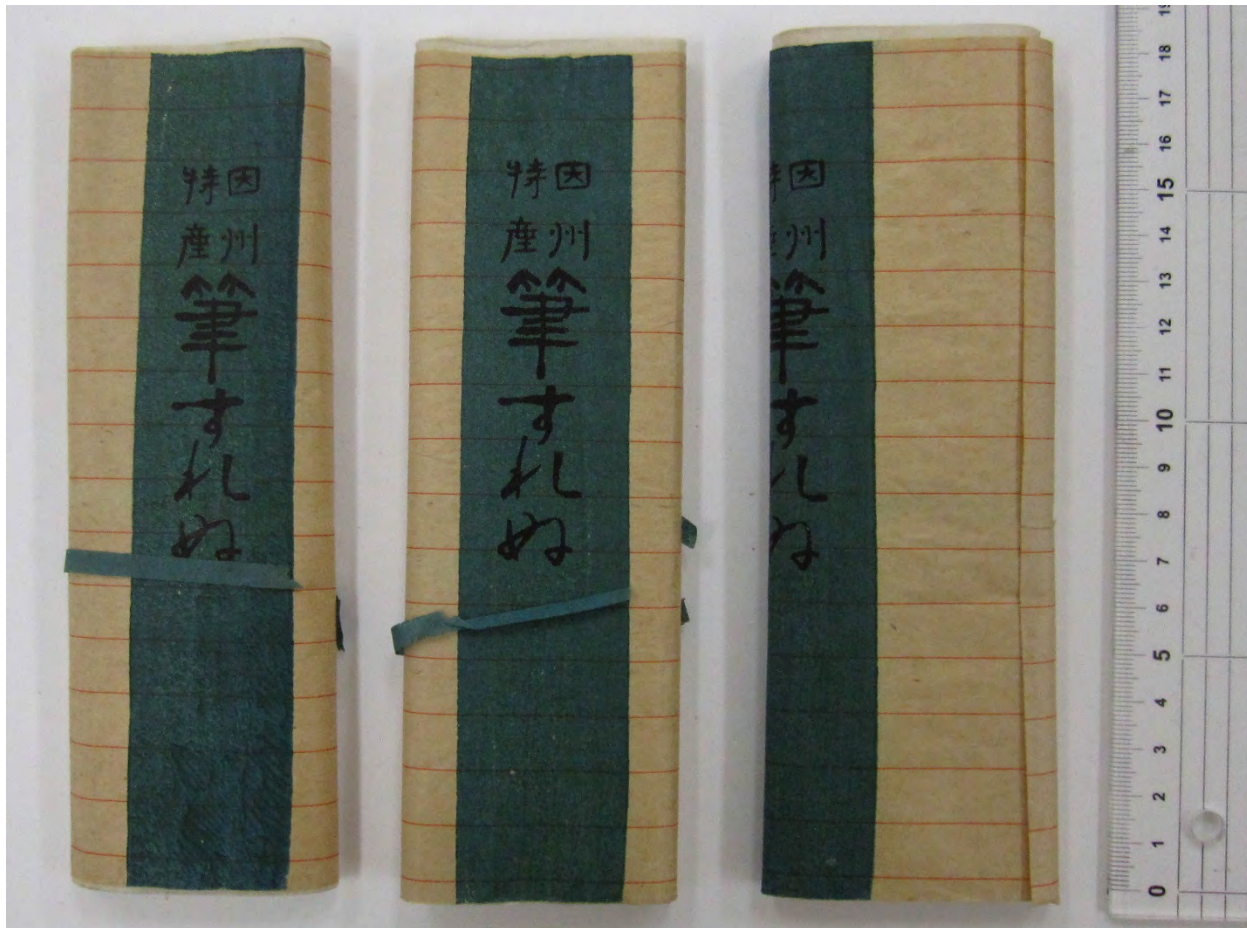 因州
特産
筆すれぬ
因州
特産
筆すれぬ
因州
特産
筆すれぬ
19
18
17
16
15
14
13
12
11
10
9
8
7
6
5
4
3
2
1
0